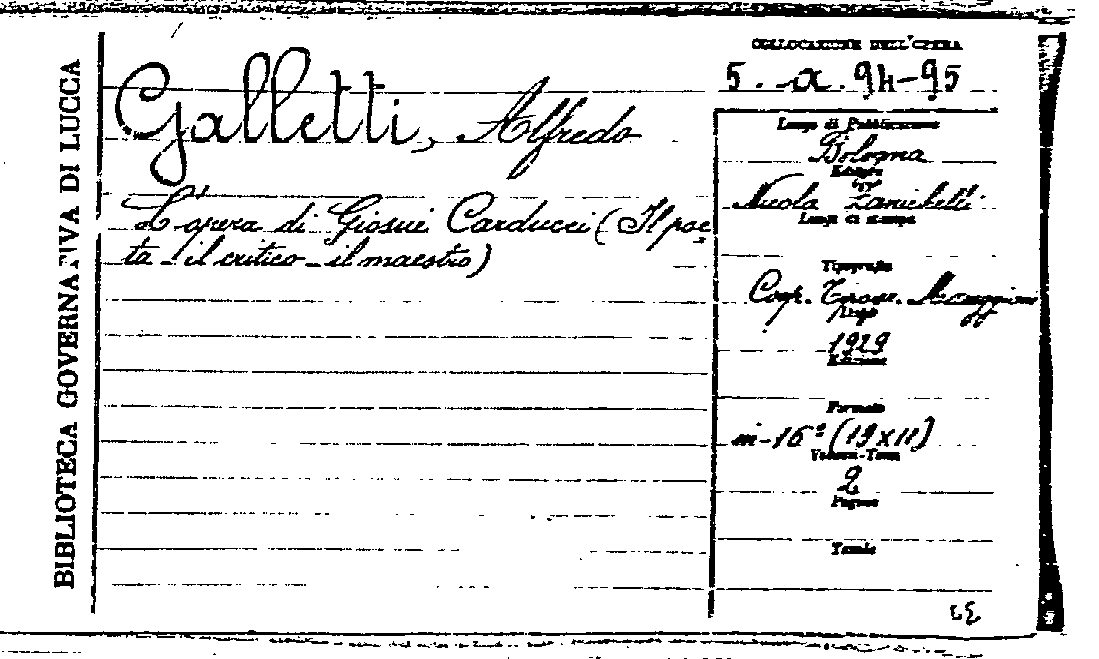 BIBLIOTECA GOVERNATIVA DI LUCCA
Galletti, Alfredo
L'opera di Giosuè Carducci (Il poe-
ta - il critico - il maestro)
COLLOCAZIONE DELL'OPERA
5. a. 94-95
Luogo di Pubblicazione
Bologna
Editore
Nicola Zanichelli
Luogo di stampa
Tipografia
Coop. Tipogr.
1929
Edizione
Formato
in-16° (19x11)
Volumi-Tomi
2
Pagine
Tavole